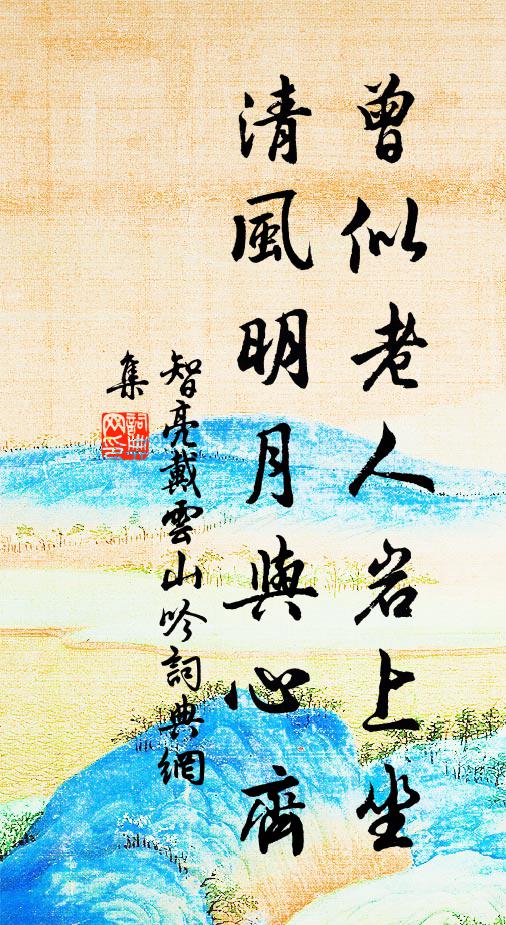 曾似老人岩上坐
清風明月與心齊
智亮戴雲山吟詞典網
集
詞典
网印